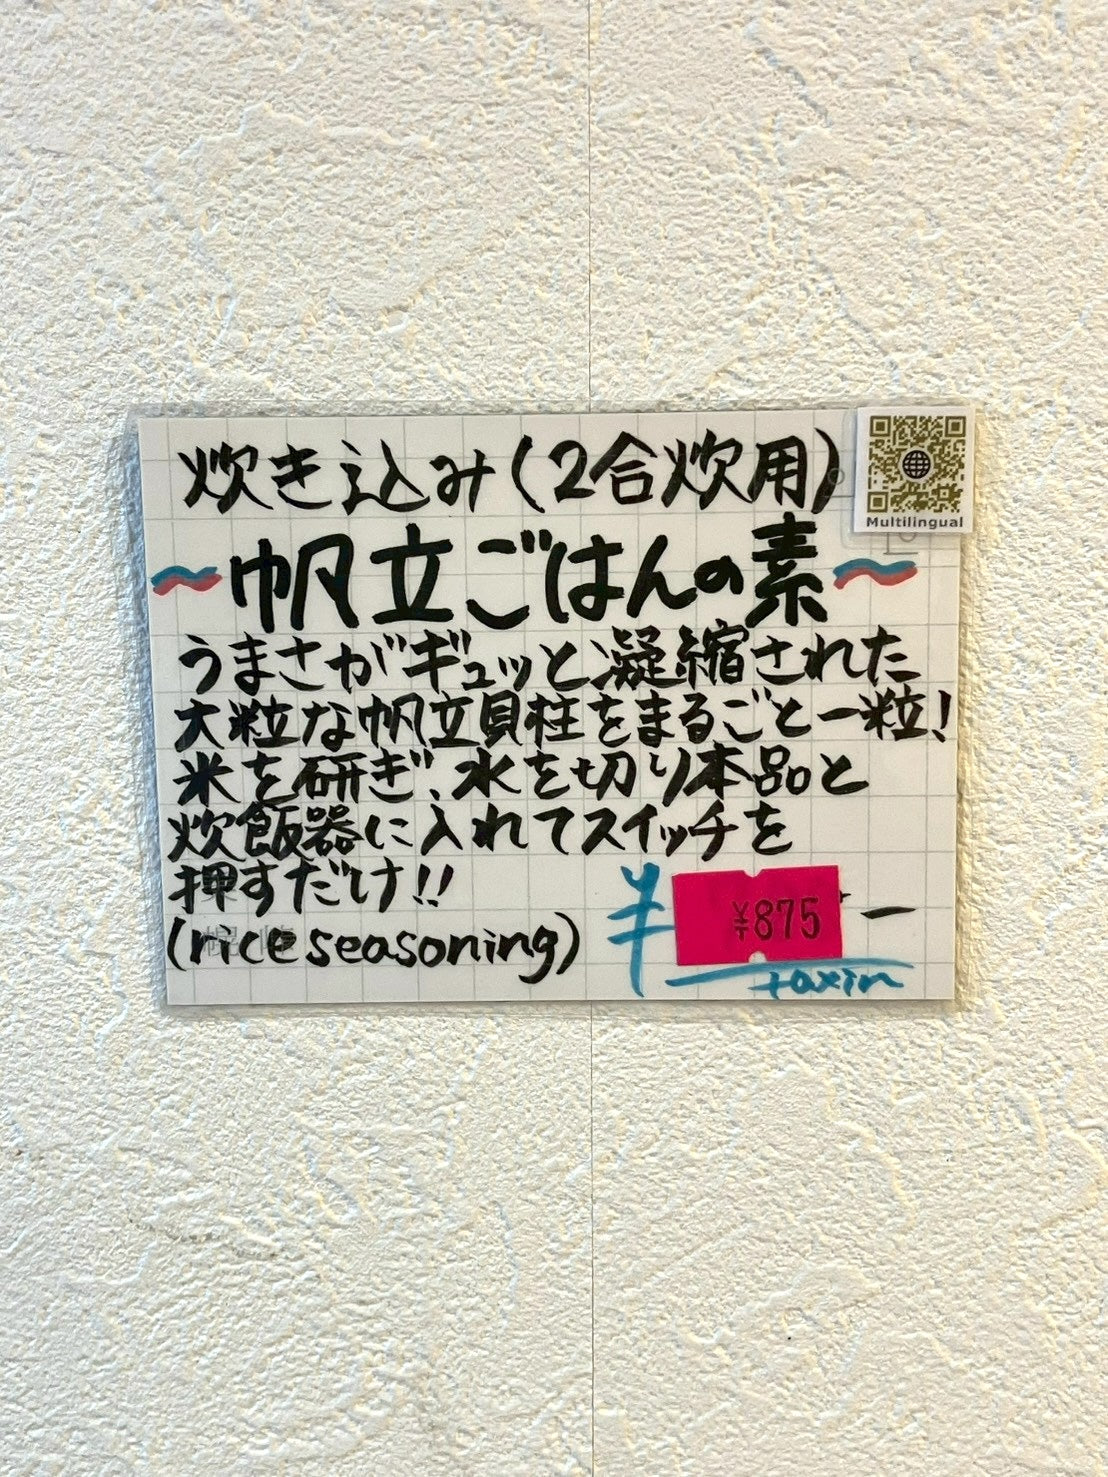 炊き込み(2合炊用)
Multilingual
~帆立ごはんの素~
うまさがギュッと凝縮された
大粒な帆立貝柱をまるごと一粒!
米を研ぎ、水を切り本品と
炊飯器に入れてスイッチを
押すだけ!!
(rice seasoning)
¥ ¥875 -
taxin